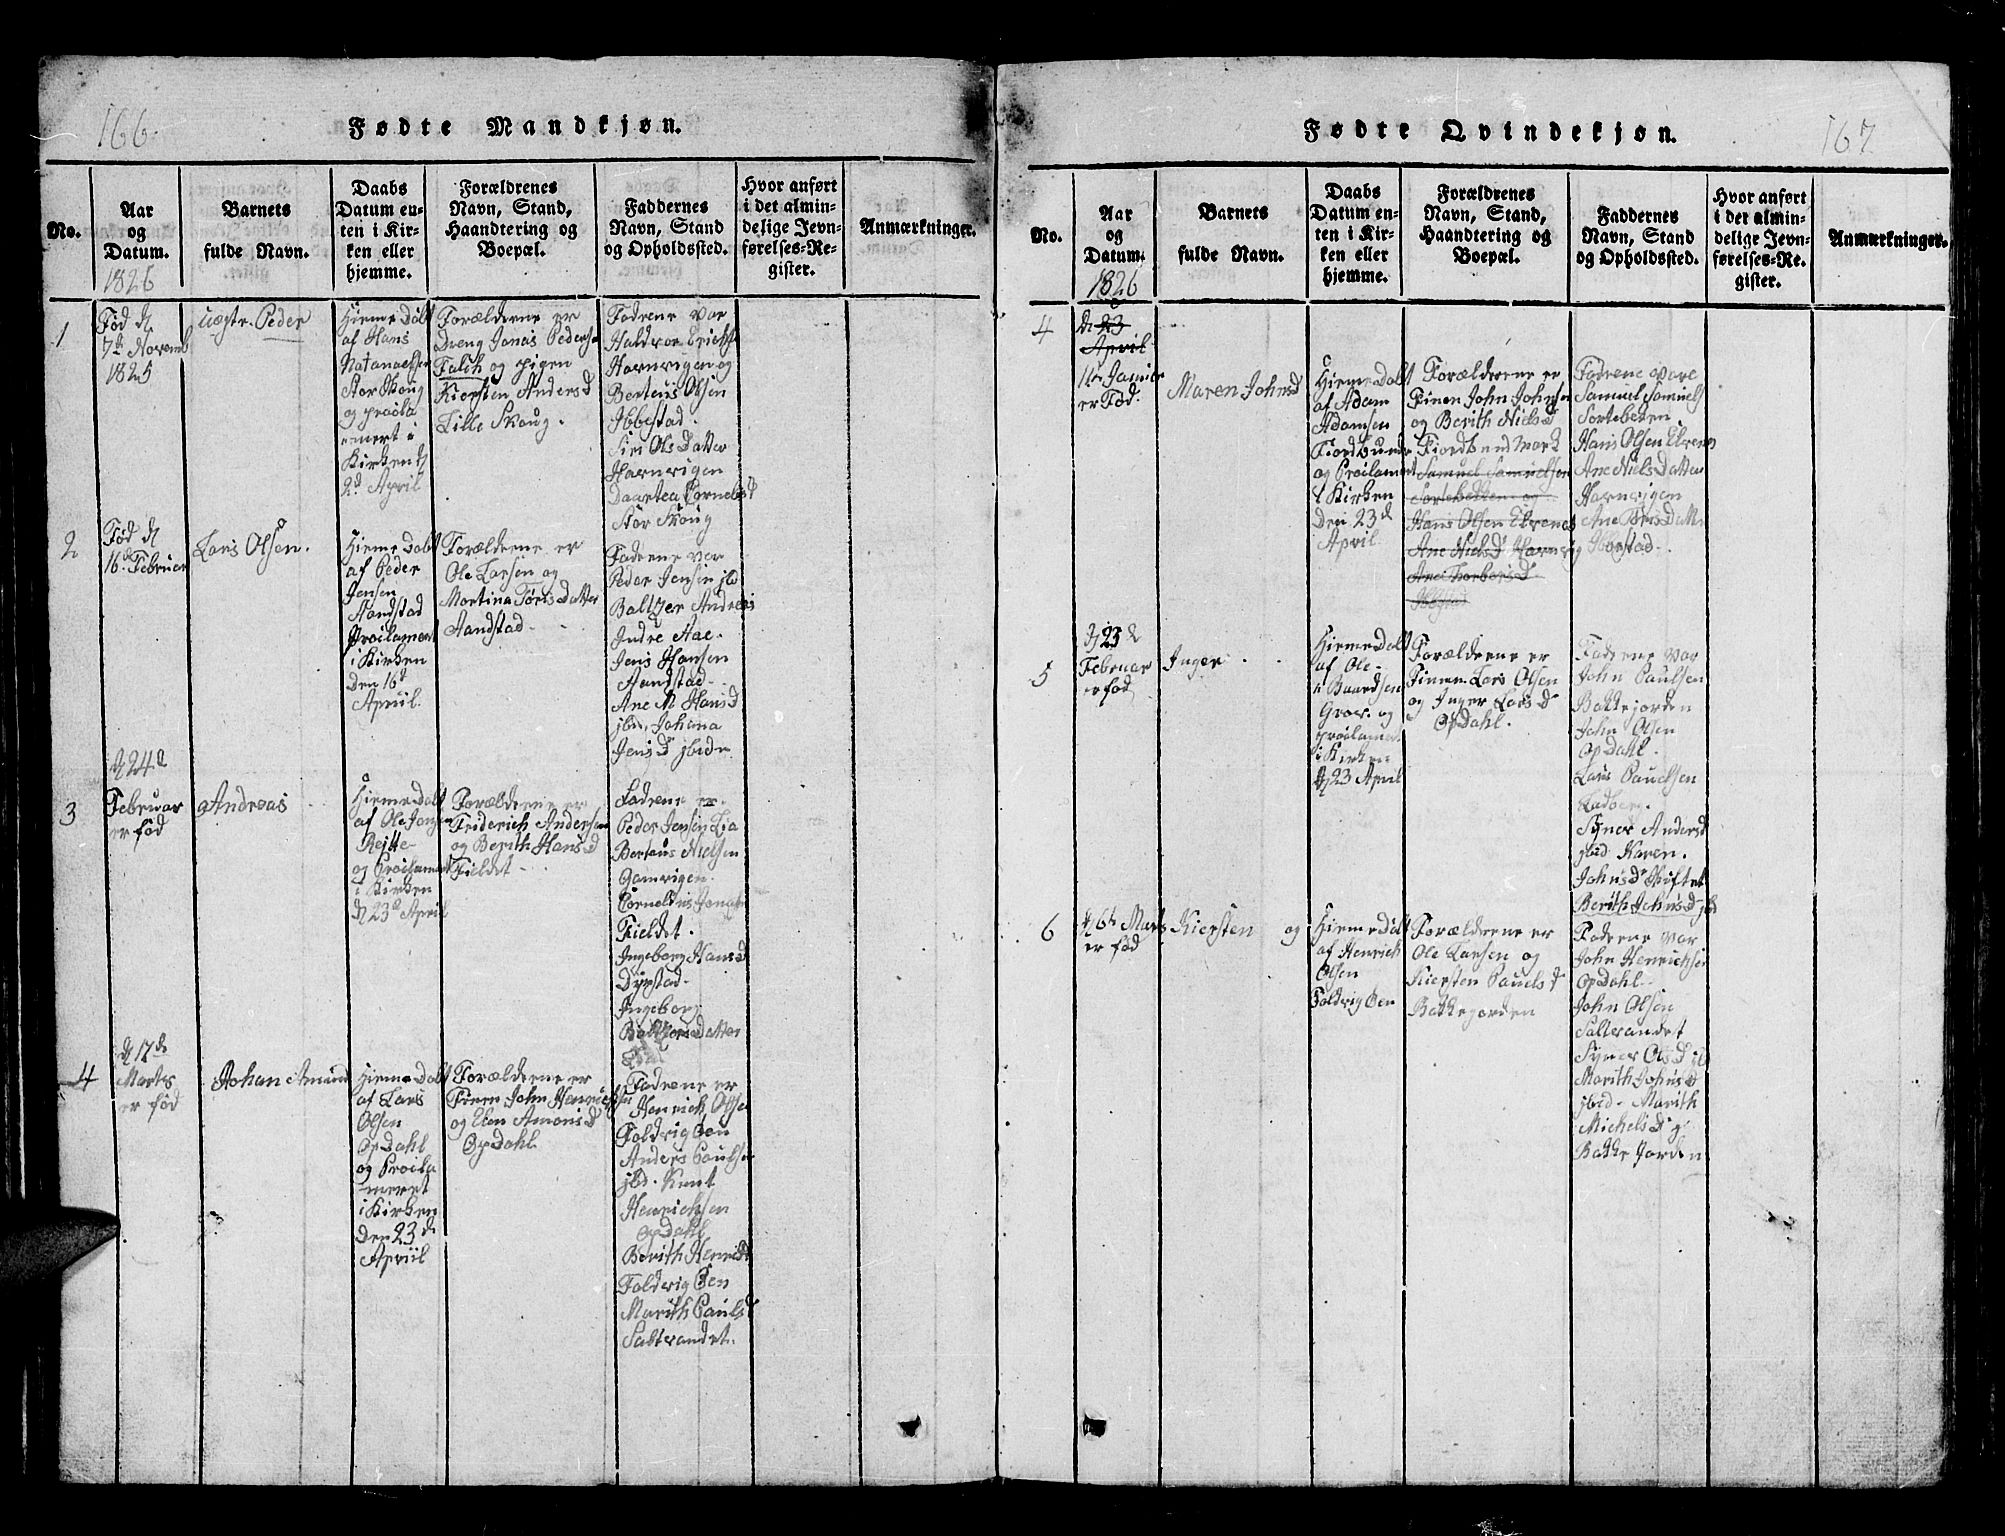 166.
Fødte Mandkjøn.
No.
Aar
og
Datum.
1826
Barnets
fulde Navn.
Daabs
Datum en-
ten i Kir-
ken eller
hjemme.
Forældrenes
Navn, Stand,
Haandtering og
Boepæl.
Faddernes
Navn, Stand
og Opholdssted.
Hvor anført
i det almin-
delige Jevn-
førelses-Re-
gister.
Anmærkninger.
1
Fød d
7de Novemb
1825
uægte. Peder
Hieme Døbt
af Hans
Natanaelsen
Stor Skoug
og procla
emert i
Kirken d
2d April
Forælderne er
Dreng Jonas Peders
Falch og pigen
Kiersten Andersd
Lille Skoug.
Fadrene var
Haldvor Erichs
Havnvigen og
Berteus Olsen
Ibbestad.
Siri Ols Datter
Havnvigen
Daartea Cornelisd
Stor Skoug
2
Fød d
16de Februar
Lars Olsen.
Hieme Døbt
af Peder
Jensen
Aandstad
Proclamert
i Kirken
Den 16d
Apriil.
Forælderne er
Ole Larsen og
Martina Tøris Datter
Aandstad
Fadrene var
Peder Jensen jbd
Baltzer Andreas
Indre Aae.
Jens Hansen
Aandstad
Ane M Hansd
jbd, Johana
Jensd jbide
3
d 24d
Februar
er fød
Andreas
Hieme Døbt
af Ole Jonsen
og Proclamert
i Kirken
d 23d April
Forælderne er
Friderich Andersen
og Berith Hansd
Fieldet
Fadrene er
Peder Jensen Lia
Berteus Nielsen
Gamvigen.
Cornelius Jonas
Fieldet.
Ingeborg Hansd
Dyrstad.
Ingeborg
Baltzersdatter
4
d 17de
Marts
er fød
Johan Amund
Hieme Døbt
af Lars
Olsen
Opdahl
og Procla
meret
i Kirken
den 23d
Apriil
Forælderne er
Finen John Henrichsen
og Elen Amonsd
Opdahl
Fadrene er
Henrich Olsen
Foldvig Øen
Anders Paulsen
jbd. Knut
Henrichsen
Opdahl
Berith Henrichd
Foldvig Øen
Marith Paulsd
Salterandet.
Fødte Qvindekjøn.
167
No.
Aar
og
Datum.
1826
Barnets
fulde Navn.
Daabs
Datum en-
ten i Kir-
ken eller
hjemme.
Forældrenes
Navn, Stand,
Haandtering og
Boepæl.
Faddernes
Navn, Stand
og Opholdssted.
Hvor anført
i det almin-
delige Jevn-
førelses-Re-
gister.
Anmærkninger.
4
d 23
April
11te Januar
er Fød.
Maren Johnsd
Hieme Døbt
af Adam
Adamsen
Fiordbunde
og Proclamert
i Kirken
Den 23d
April
Forælderne er
Finen John Johnsen
og Berith Nielsd
Fiordbundmark
Samuel Samuelsen
Sortebekken og
Hans Olsen Elvenes
Ane Nielsd Havnvig
Ane Thorborsd
Ibbestad
Fadrene vare
Samuel Samuels
Sortebeken
Hans Olsen Elvenes
Ane Niels Datter
Havnvigen
Ane Tørisdatter
Ibbestad.
5
d 23d
Februar
er fød
Inger
Hieme Døbt
af Ole
Baardsen
Grov. og
proclamert
i Kirken
d 23 April
Forælderne er
Finnen Lars Olsen
og Inger Larsd
Opdahl.
Fadrene var
John Paulsen
Bakkejorden
John Olsen
Opdahl.
Lars Paulsen
Ladberg.
Syner Andersd
jbd Karen.
Johnsd Skiftet
Berith Johnsd jbd
6
d 6te Marts
er fød
Kiersten og
Hieme Døbt
af Henrich
Olsen
Foldvig Øen
Forælderne er
Ole Larsen og
Kiersten Paulsd
Bakkejorden
Fadrene var
John Henrichsen
Opdahl
John Olsen
Salterandet
Syner Olsd jbd
Marith Johnsd
jbd. Marith
Michelsd
Bakkejorden